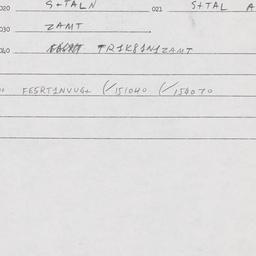 020 S+TALN 021 S+TAL A
030 ZAMT
040 TR1K81N1ZAMT
FESRT1NVUG+ (/151040 (/154070